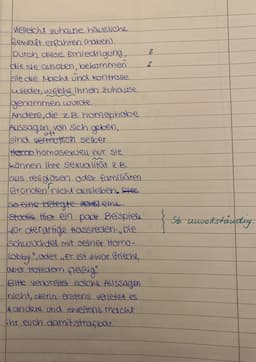 vielleicht zuhause häusliche
Gewalt erfahren (haben).
Durch diese Erniedrigung, Z
die sie ausüben, bekommen Z
sie die Macht und Kontrolle
wieder, welche ihnen zuhause
genommen wurde.
Andere, die z.B. homophobe
Aussagen von sich geben,
sind vermutlich oft selber
homosexuell nur sie
können ihre Sexualität z.B.
aus religiösen oder familiären
Gründen nicht ausleben.
Hier ein paar Beispiele
für derartige Hassreden: „die
Schwuchtel mit seiner Homo-
Lobby" oder „Er ist zwar Grieche,
aber trotzdem fleißig".
Bitte verbreitet solche Aussagen
nicht, denn erstens verletzt es
andere und zweitens macht
ihr euch damit strafbar.
Sb unvollständig.